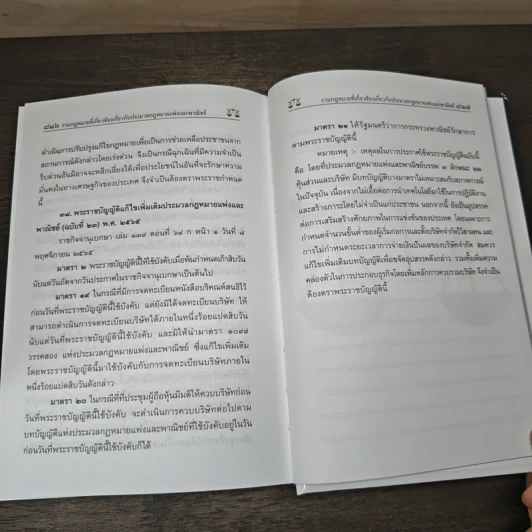 ๘๒๖ รวมกฎหมายที่เกี่ยวข้องเกี่ยวกับประมวลกฎหมายแพ่งและพาณิชย์
ดำเนินการปรับปรุงแก้ไขกฎหมายเพื่อเป็นการช่วยเหลือประชาชนจาก
สถานการณ์ดังกล่าวโดยเร่งด่วน จึงเป็นกรณีฉุกเฉินที่มีความจำเป็น
รีบด่วนอันมิอาจจะหลีกเลี่ยงได้เพื่อประโยชน์ในอันที่จะรักษาความ
มั่นคงในทางเศรษฐกิจของประเทศ จึงจำเป็นต้องตราพระราชกำหนด
นี้
๑๘. พระราชบัญญัติแก้ไขเพิ่มเติมประมวลกฎหมายแพ่งและ
พาณิชย์ (ฉบับที่ ๒๓) พ.ศ. ๒๕๖๕
ราชกิจจานุเบกษา เล่ม ๑๓๙ ตอนที่ ๖๙ ก หน้า ๑ วันที่ ๘
พฤศจิกายน ๒๕๖๕
มาตรา ๒ พระราชบัญญัตินี้ให้ใช้บังคับเมื่อพ้นกำหนดเก้าสิบวัน
นับแต่วันถัดจากวันประกาศในราชกิจจานุเบกษาเป็นต้นไป
มาตรา ๑๙ ในกรณีที่มีการจดทะเบียนหนังสือบริคณห์สนธิไว้
ก่อนวันที่พระราชบัญญัตินี้ใช้บังคับ แต่ยังมิได้จดทะเบียนบริษัท ให้
สามารถดำเนินการจดทะเบียนบริษัทได้ภายในหนึ่งร้อยแปดสิบวัน
นับแต่วันที่พระราชบัญญัตินี้ใช้บังคับ และมิให้นำมาตรา ๑๐๙๙
วรรคสอง แห่งประมวลกฎหมายแพ่งและพาณิชย์ ซึ่งแก้ไขเพิ่มเติม
โดยพระราชบัญญัตินี้มาใช้บังคับกับการจดทะเบียนบริษัทภายใน
หนึ่งร้อยแปดสิบวันดังกล่าว
มาตรา ๒๐ ในกรณีที่ที่ประชุมผู้ถือหุ้นมีมติให้ควบบริษัทก่อน
วันที่พระราชบัญญัตินี้ใช้บังคับ จะดำเนินการควบบริษัทต่อไปตาม
บทบัญญัติแห่งประมวลกฎหมายแพ่งและพาณิชย์ที่ใช้บังคับอยู่ในวัน
ก่อนวันที่พระราชบัญญัตินี้ใช้บังคับก็ได้
รวมกฎหมายที่เกี่ยวข้องเกี่ยวกับประมวลกฎหมายแพ่งและพาณิชย์ ๘๒๗
มาตรา ๒๑ ให้รัฐมนตรีว่าการกระทรวงพาณิชย์รักษาการ
ตามพระราชบัญญัตินี้
หมายเหตุ :- เหตุผลในการประกาศใช้พระราชบัญญัติฉบับนี้
คือ โดยที่ประมวลกฎหมายแพ่งและพาณิชย์บรรพ ๓ ลักษณะ ๒๒
หุ้นส่วนและบริษัท มีบทบัญญัติบางมาตราไม่เหมาะสมกับสภาพการณ์
ในปัจจุบัน เนื่องจากไม่เอื้อต่อการนำเทคโนโลยีมาใช้ในการปฏิบัติงาน
และสร้างภาระโดยไม่จำเป็นแก่ประชาชน นอกจากนี้ ยังเป็นอุปสรรค
ต่อการเสริมสร้างศักยภาพในการแข่งขันของประเทศ โดยเฉพาะการ
กำหนดจำนวนขั้นต่ำของผู้เริ่มก่อการและตั้งบริษัทจำกัดไว้สามคน และ
การไม่กำหนดระยะเวลาการจ่ายเงินปันผลของบริษัทจำกัด สมควร
แก้ไขเพิ่มเติมบทบัญญัติเพื่อขจัดอุปสรรคดังกล่าว รวมทั้งเพิ่มความ
คล่องตัวในการประกอบธุรกิจโดยเพิ่มหลักการควบรวมบริษัท จึงจำเป็น
ต้องตราพระราชบัญญัตินี้